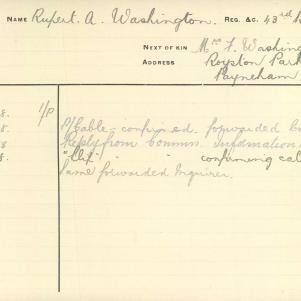 NAME Rupert. A. Washington. REG. &C. 43rd
NEXT OF KIN Mrs F. Washing
ADDRESS Royston Park
Payneham.
8. 1/P P/Cable confirmed. forwarded
8. Reply from Commn. Information
8. "Clif" " " confirming cal
Same forwarded Inquirer.